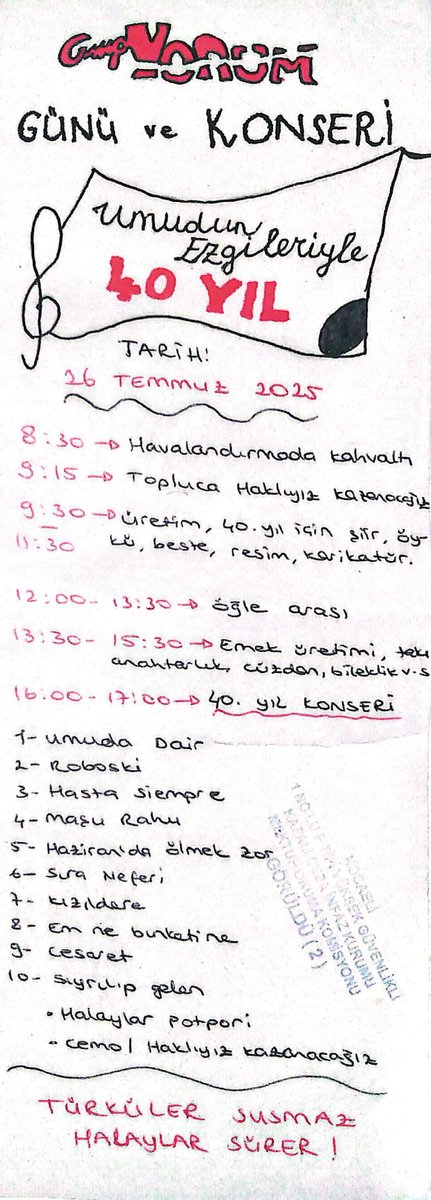 Grup YORUM
GÜNÜ ve KONSERİ
Umudun
Ezgileriyle
40 YIL
TARİH:
26 TEMMUZ 2025
8:30 → Havalandırmada kahvaltı
9:15 → Topluca Haklıyız kazanacağız
9:30 → üretim, 40. yıl için şiir, öy-
11:30 kü, beste, resim, karikatür.
12:00 - 13:30 → öğle arası
13:30 - 15:30 → Emek üretimi,
anahtarlık, cüzdan, bileklik v.s
16:00 - 17:00 → 40. yıl KONSERİ
1- Umuda Dair
2- Roboski
3- Hasta Siempre
4- Maşu Rahu
5- Haziran'da ölmek zor
6- Sıra Neferi
7- Kızıldere
8- Em ne bınketine
9- Cesaret
10- Sıyrılıp gelen
• Halaylar potpori
• Cemo / Haklıyız kazanacağız
KOCAELİ
1 NOLU F TİPİ YÜKSEK GÜVENLİKLİ
KAPALI CEZA İNFAZ KURUMU
MEKTUP OKUMA KOMİSYONU
GÖRÜLDÜ (2)
TÜRKÜLER SUSMAZ
HALAYLAR SÜRER!